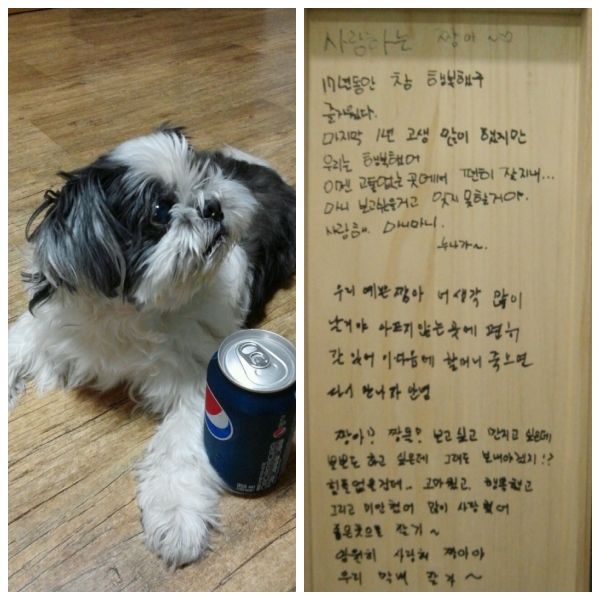 사랑하는 짱아 ~♡
17년동안 참 행복했구
즐거웠다.
마지막 1년 고생 많이 했지만
우리는 행복했어
이젠 고통없는 곳에서 편히 잘지내...
많이 보고싶을거고 잊지 못할거야.
사랑해. 많이많이.
누나가~.
우리 예쁜 짱아 너 생각 많이
날거야 아프지 않는 곳에 편히
잘 있어 이다음에 할머니 죽으면
다시 만나자 안녕
짱아! 짱뭉! 보고 싶고 만지고 싶은데
뽀뽀도 하고 싶은데 그래도 보내야겠지!?
힘들었을 건데.. 고마웠고, 행복했고
그리고 미안했어 많이 사랑했어
좋은곳으로 잘가 ~
영원히 사랑해 짱아야
우리 막내 잘가 ~